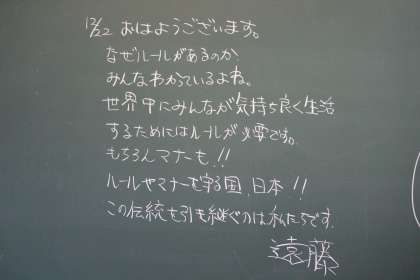 12/22 おはようございます。
なぜルールがあるのか
みんなわかっているよね。
世界中にみんなが気持ち良く生活
するためにはルールが必要です。
もちろんマナーも!!
ルールやマナーを守る国、日本!!
この伝統を引き継ぐのは私たちです。
遠藤